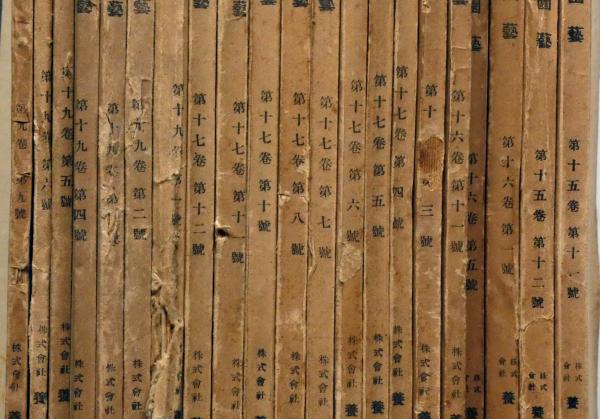 園藝 第十五卷 第十一號 株式會社 養
園藝 第十五卷 第十二號 株式會社 養
藝 第十六卷 第一號 株式會社 養
園藝 第十六卷 第五號 株式會社 養
第十六卷 第十一號 株式會社 養
第十 三號 株式會社
藝 第十七卷 第四號 株式會社 養
第十七卷 第五號 株式會社 養
第十七卷 第六號 株式會社 養
第十七卷 第七號 株式會社
藝 第十七卷 第八號 株式會社
第十七卷 第十號 株式會社
第十七卷 第十 號 株式會社
第十七卷 第十二號 株式會社 養
第十九卷 第一號
藝 第十九卷 第二號 株式會社
藝 第十九卷 第 株式會社
藝 第十九卷 第四號 株式會社 養
第十九卷 第五號 株式會社 養
第十九卷 第 號 株式會社 養
第九號 株式會社 養